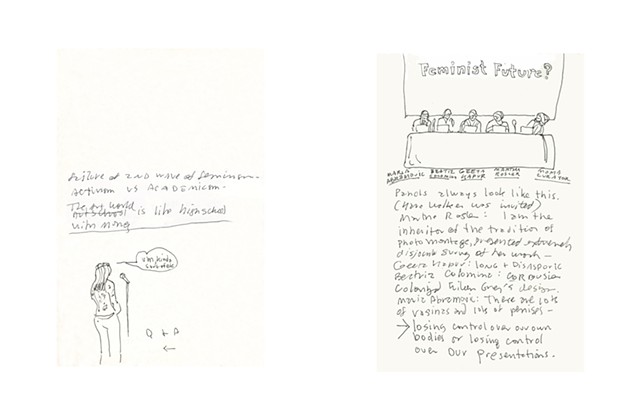 Failure of 2nd wave of feminism.
Activism vs Academicm.
The art world
art school is like highschool
with money
um, kinda
Q + A
←
Feminist Future?
MARINA ABRAMOVIC
BEATRIZ COLOMINA
GEETA KAPUR
MARTHA ROSLER
MOMA CURATOR
Panels always look like this.
(Kara Walker was invited)
Martha Rosler: I am the
inheritor of the tradition of
photomontage, presented extremely
disjoint survey of her work –
Geeta Kapur: long + Diasporic
Beatriz Colomina: Corbusier
Colonized Eileen Grey's design.
Maria Abramovic: There are lots
of vaginas and lots of penises –
→ losing control over our own
bodies or losing control
over our presentations.